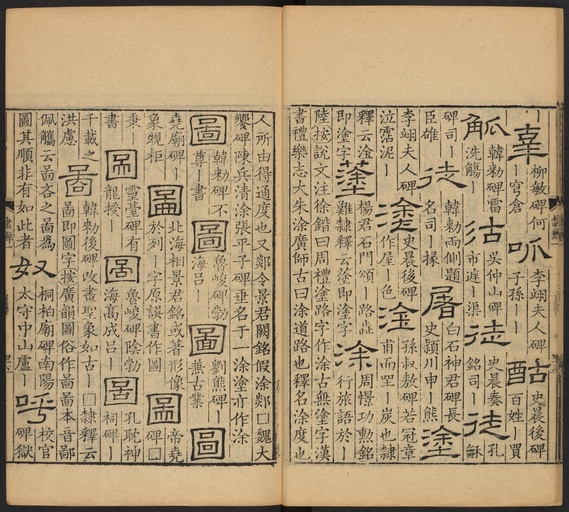 辜柳敏碑何｜穹倉呱李翊夫人碑子孫｜｜酤史晨後碑百姓｜買
觚韓勑碑雷洗觴｜沽吳仲山碑市遊｜渠徒史晨奏銘司｜徒孔龢
碑司｜臣雄徒韓勑兩側題名司｜掾屠白石神君碑長史潁川申｜熊塗
李翊夫人碑泣霑泥｜塗史晨後碑作屋｜色塗孫叔敖碑若冠章甫而坐｜炭也隸
釋云淦即塗字塗楊君石門頌｜路難隸釋云淦即塗字涂周憬功勳銘行旅語於｜
陸按說文注徐鍇曰周禮塗路字作涂古無塗字漢
書禮樂志大朱涂廣師古曰涂道路也釋名涂度也
人所由得通度也又郯令景君闕銘假涂郯□魏大
饗碑陳兵清涂張平子碑垂名于一涂塗亦作涂
圖韓勑碑不尊｜書圖魯峻碑勃海呂｜圖劉熊碑兼古業｜圖
堯廟碑｜象規柜圖北海相景君銘或著形像於列｜字原誤書作圖圖帝堯碑｜□
乘｜書圖靈臺碑有龍授｜圖魯峻碑陰勃海高成呂｜圖孔耽神祠碑｜
千載之洪慮啚韓勑後碑改畫聖象如古｜□隸釋云啚即圖字按廣韻圖俗作啚啚本音鄙
佩觿云啚吝之啚爲圖其順非有如此者奴桐柏廟碑南陽太守中山盧｜呼校官碑獄